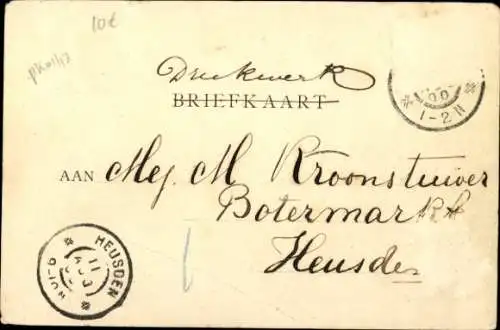 10e
Drukwerk
BRIEFKAART
00
1-2N
AAN Mej. M Kroonstuiver
Botermarkt
Heusden
HEUSDEN
11